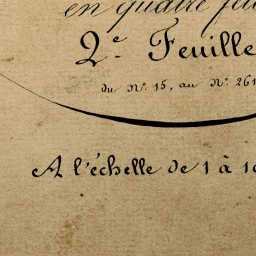 en quatre
2.e Feuille
du N.o 15, au N.o 261
A l'échelle de 1 à